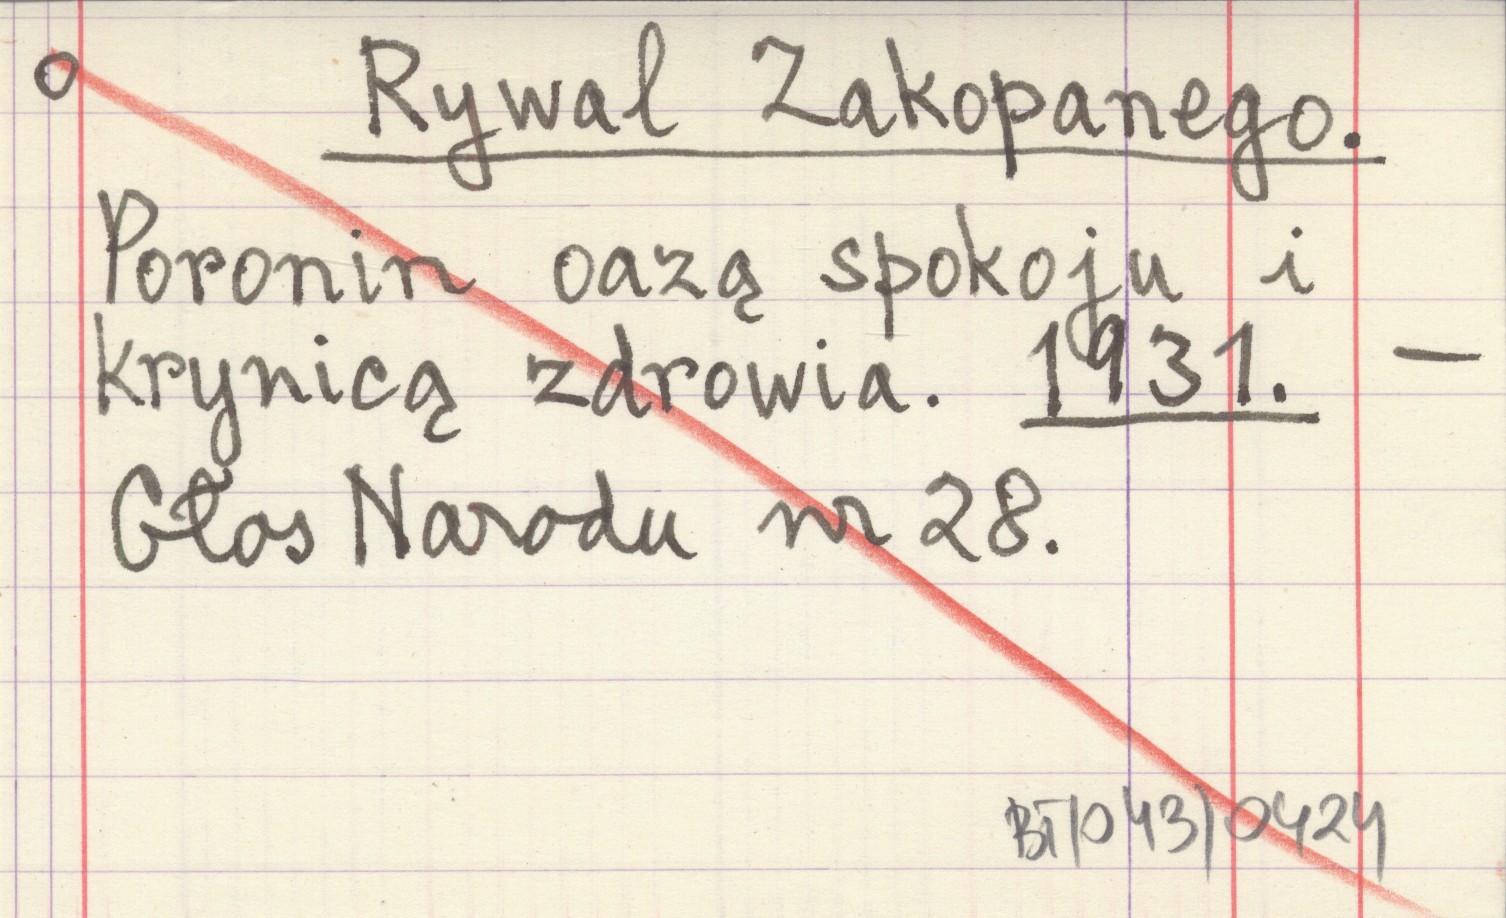 o Rywal Zakopanego.
Poronin oazą spokoju i
krynicą zdrowia. 1931. —
Głos Narodu nr 28.
BT/043/0424